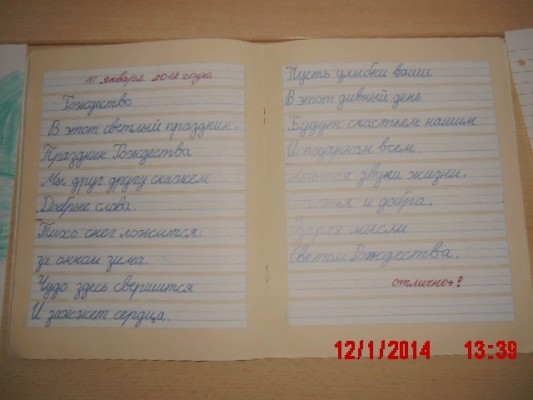 10 января 2012 года
Рождество
В этот светлый праздник.
Праздник Рождества
Мы друг другу скажем
Добрые слова.
Тихо снег ложится:
за окном зима.
Чудо здесь свершится
И зажжет сердца.
Пусть улыбки ваши
В этот дивный день
Будут счастьем нашим
И подарком всем.
звуки жизни.
и добра.
мысли
Светом Рождества.
отлично!
12/1/2014 13:39